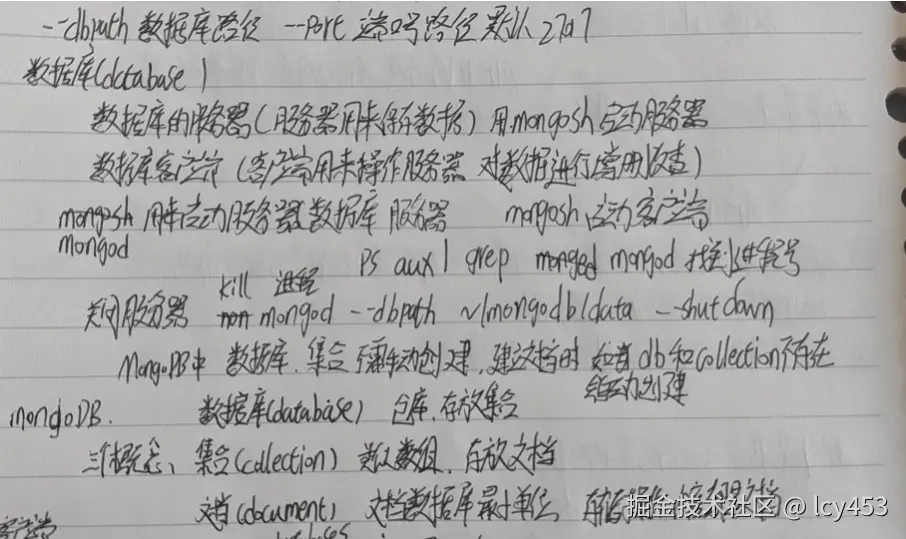 --dbpath 数据库路径 --port 端口号路径 默认 27017
数据库(database)
数据库的服务器(服务器用来保存数据) 用mongosh启动服务器
数据库客户端 (客户端用来操作服务器 对数据进行增删改查)
mongosh 用来启动服务器 数据库 服务器 mongosh 启动客户端
mongod
ps aux | grep monged mongod 找到进程号
kill 进程
关闭服务器 mongod --dbpath ~/mongodb/data --shutdown
MongoDB中 数据库、集合 手动创建，建文档时 如果 db和collection不存在
自动创建
mongoDB. 数据库(database) 仓库，存放集合
三个概念、集合(collection) 类似数组，存放文档
文档(document) 文档数据库最小单位
客户端
掘金技术社区 @ lcy453